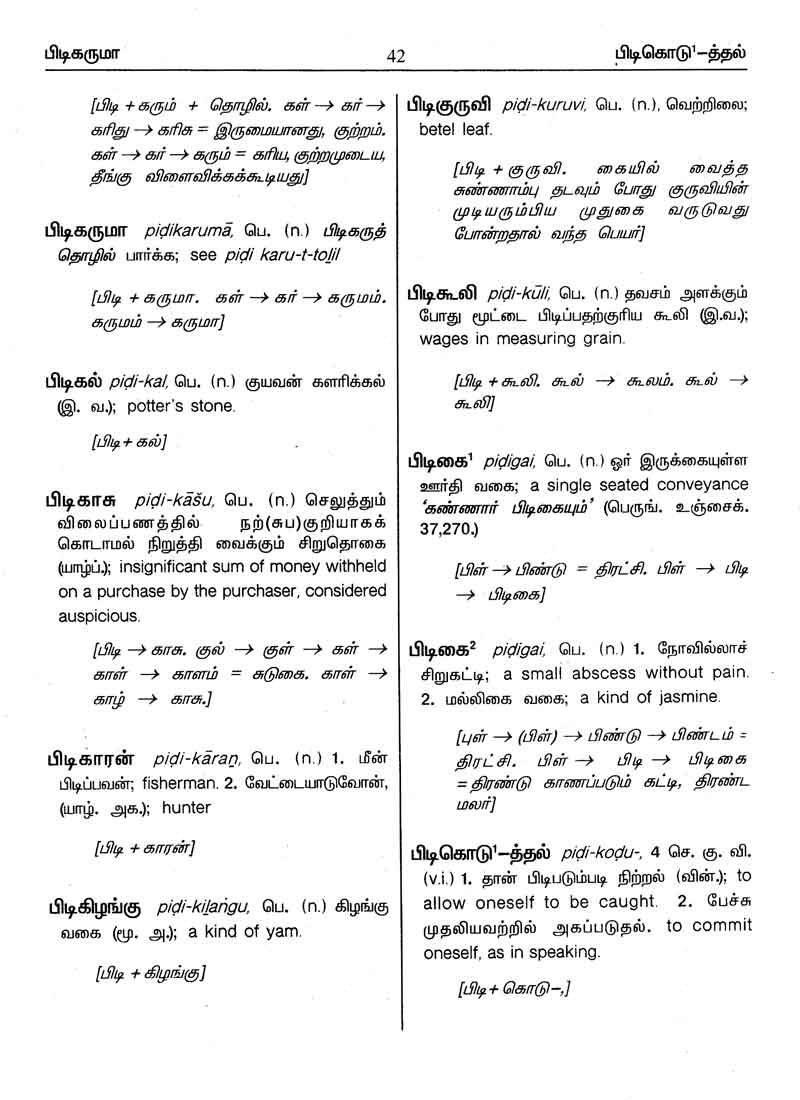 பிடிகருமா
42
பிடிகொடு¹–த்தல்
[பிடி + கரும் + தொழில். கள் → கர் →
கரிது → கரிசு = இருமையானது, குற்றம்.
கள் → கர் → கரும் = கரிய, குற்றமுடைய,
தீங்கு விளைவிக்கக்கூடியது]
பிடிகருமா piḍikarumā, பெ. (n.) பிடிகருத்
தொழில் பார்க்க; see piḍi karu-t-toḻil
[பிடி + கருமா. கள் → கர் → கருமம்.
கருமம் → கருமா]
பிடிகல் piḍi-kal, பெ. (n.) குயவன் களரிக்கல்
(இ. வ.); potter's stone.
[பிடி + கல்]
பிடிகாசு piḍi-kāšu, பெ. (n.) செலுத்தும்
விலைப்பணத்தில் நற்(சுப)குறியாகக்
கொடாமல் நிறுத்தி வைக்கும் சிறுதொகை
(யாழ்ப்.); insignificant sum of money withheld
on a purchase by the purchaser, considered
auspicious.
[பிடி → காசு. குல் → குள் → கள் →
காள் → காளம் = சுடுகை. காள் →
காழ் → காசு.]
பிடிகாரன் piḍi-kāraṉ, பெ. (n.) 1. மீன்
பிடிப்பவன்; fisherman. 2. வேட்டையாடுவோன்,
(யாழ். அக.); hunter
[பிடி + காரன்]
பிடிகிழங்கு piḍi-kiḻaṅgu, பெ. (n.) கிழங்கு
வகை (மூ. அ.); a kind of yam.
[பிடி + கிழங்கு]
பிடிகுருவி piḍi-kuruvi, பெ. (n.), வெற்றிலை;
betel leaf.
[பிடி + குருவி. கையில் வைத்த
சுண்ணாம்பு தடவும் போது குருவியின்
முடியரும்பிய முதுகை வருடுவது
போன்றதால் வந்த பெயர்]
பிடிகூலி piḍi-kūli, பெ. (n.) தவசம் அளக்கும்
போது மூட்டை பிடிப்பதற்குரிய கூலி (இ.வ.);
wages in measuring grain.
[பிடி + கூலி. கூல் → கூலம். கூல் →
கூலி]
பிடிகை¹ piḍigai, பெ. (n.) ஓர் இருக்கையுள்ள
ஊர்தி வகை; a single seated conveyance
‘கண்ணார் பிடிகையும்’ (பெருங். உஞ்சைக்.
37,270.)
[பிள் → பிண்டு = திரட்சி. பிள் → பிடி
→ பிடிகை]
பிடிகை² piḍigai, பெ. (n.) 1. நோவில்லாச்
சிறுகட்டி; a small abscess without pain.
2. மல்லிகை வகை; a kind of jasmine.
[புள் → (பிள்) → பிண்டு → பிண்டம் =
திரட்சி. பிள் → பிடி → பிடிகை
= திரண்டு காணப்படும் கட்டி, திரண்ட
மலர்]
பிடிகொடு¹–த்தல் piḍi-koḍu-, 4 செ. கு. வி.
(v.i.) 1. தான் பிடிபடும்படி நிற்றல் (வின்.); to
allow oneself to be caught. 2. பேச்சு
முதலியவற்றில் அகப்படுதல். to commit
oneself, as in speaking.
[பிடி + கொடு–,]